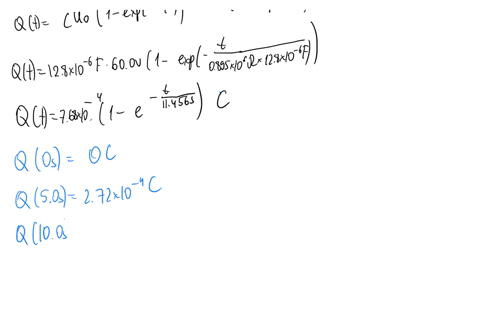 Q(t) = CU₀(1-exp(
Q(t) = 12.8×10⁻⁶F · 60.0V (1- exp(- t/0.895×10⁶Ω×12.8×10⁻⁶F))
Q(t) = 7.68×10⁻⁴ (1 - e^(-t/11.456s)) C
Q(0s) = 0C
Q(5.0s) = 2.72×10⁻⁴ C
Q(10.0s